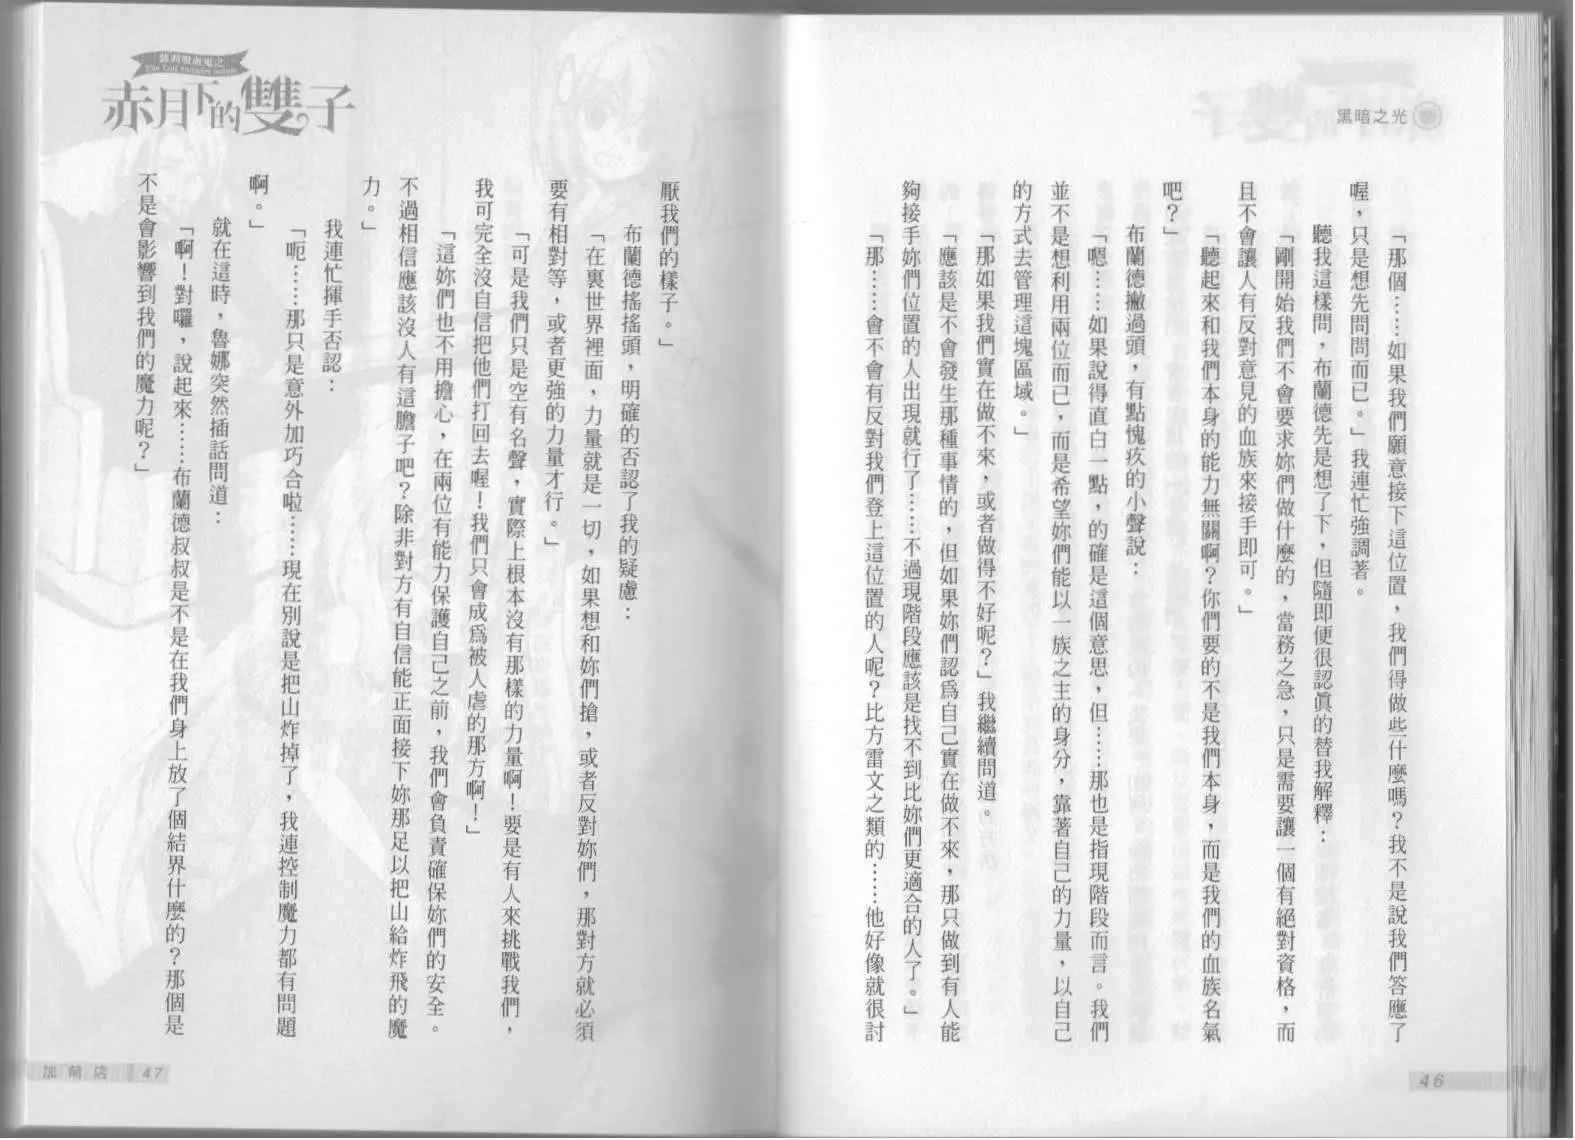 黑暗之光
「那個……如果我們願意接下這位置，我們得做些什麼嗎？我不是說我們答應了
喔，只是想先問問而已。」我連忙強調著。
聽我這樣問，布蘭德先是想了下，但隨即便很認真的替我解釋：
「剛開始我們不會要求妳們做什麼的，當務之急，只是需要讓一個有絕對資格，而
且不會讓人有反對意見的血族來接手即可。」
「聽起來和我們本身的能力無關啊？你們要的不是我們本身，而是我們的血族名氣
吧？」
布蘭德撇過頭，有點愧疚的小聲說：
「嗯……如果說得直白一點，的確是這個意思，但……那也是指現階段而言。我們
並不是想利用兩位而已，而是希望妳們能以一族之主的身分，靠著自己的力量，以自己
的方式去管理這塊區域。」
「那如果我們實在做不來，或者做得不好呢？」我繼續問道。
「應該是不會發生那種事情的，但如果妳們認為自己實在做不來，那只做到有人能
夠接手妳們位置的人出現就行了……不過現階段應該是找不到比妳們更適合的人了。」
「那……會不會有反對我們登上這位置的人呢？比方雷文之類的……他好像就很討
46
赤月下的雙子
厭我們的樣子。」
布蘭德搖搖頭，明確的否認了我的疑慮：
「在裏世界裡面，力量就是一切，如果想和妳們搶，或者反對妳們，那對方就必須
要有相對等，或者更強的力量才行。」
「可是我們只是空有名聲，實際上根本沒有那樣的力量啊！要是有人來挑戰我們，
我可完全沒自信把他們打回去喔！我們只會成為被人虐的那方啊！」
「這妳們也不用擔心，在兩位有能力保護自己之前，我們會負責確保妳們的安全。
不過相信應該沒人有這膽子吧？除非對方有自信能正面接下妳那足以把山給炸飛的魔
力。」
我連忙揮手否認：
「呃……那只是意外加巧合啦……現在別說是把山炸掉了，我連控制魔力都有問題
啊。」
就在這時，魯娜突然插話問道：
「啊！對囉，說起來……布蘭德叔叔是不是在我們身上放了個結界什麼的？那個是
不是會影響到我們的魔力呢？」
47